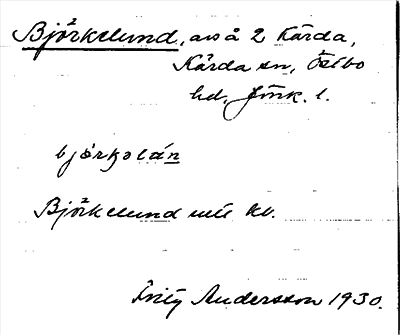 Björkelund, avs å 2 Kärda,
Kärda sn, Östbo
hd, Jönk. l.
björkəlán
Björkelund utt kv.
Fritz Andersson 1930.